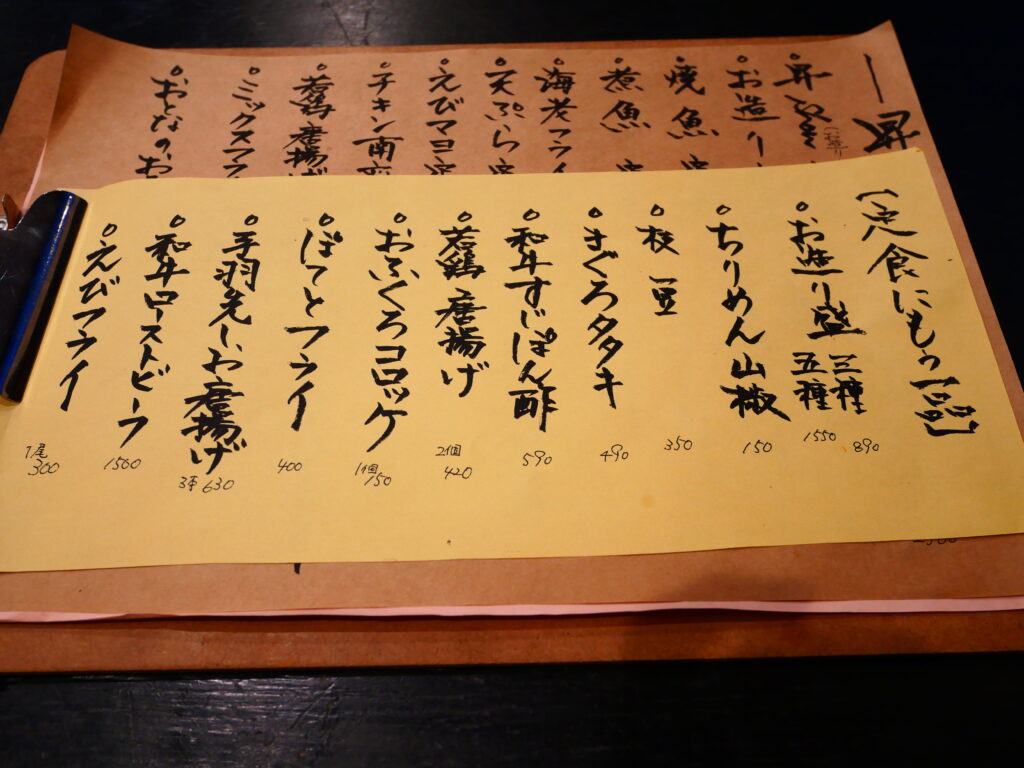 お造り
焼魚
煮魚
海老フライ
天ぷら
えびマヨ
チキン南
若鶏唐揚げ
ミックスフ
おとなのお
【定食にもう一品】
お造り盛 三種 890
五種 1550
ちりめん山椒 150
枝豆 350
まぐろタタキ 490
和牛すじぽん酢 590
若鶏唐揚げ 2個 420
おふくろコロッケ 1個 150
ぽてとフライ 400
手羽先しお唐揚げ 3本 630
和牛ローストビーフ 1500
えびフライ 1尾 300